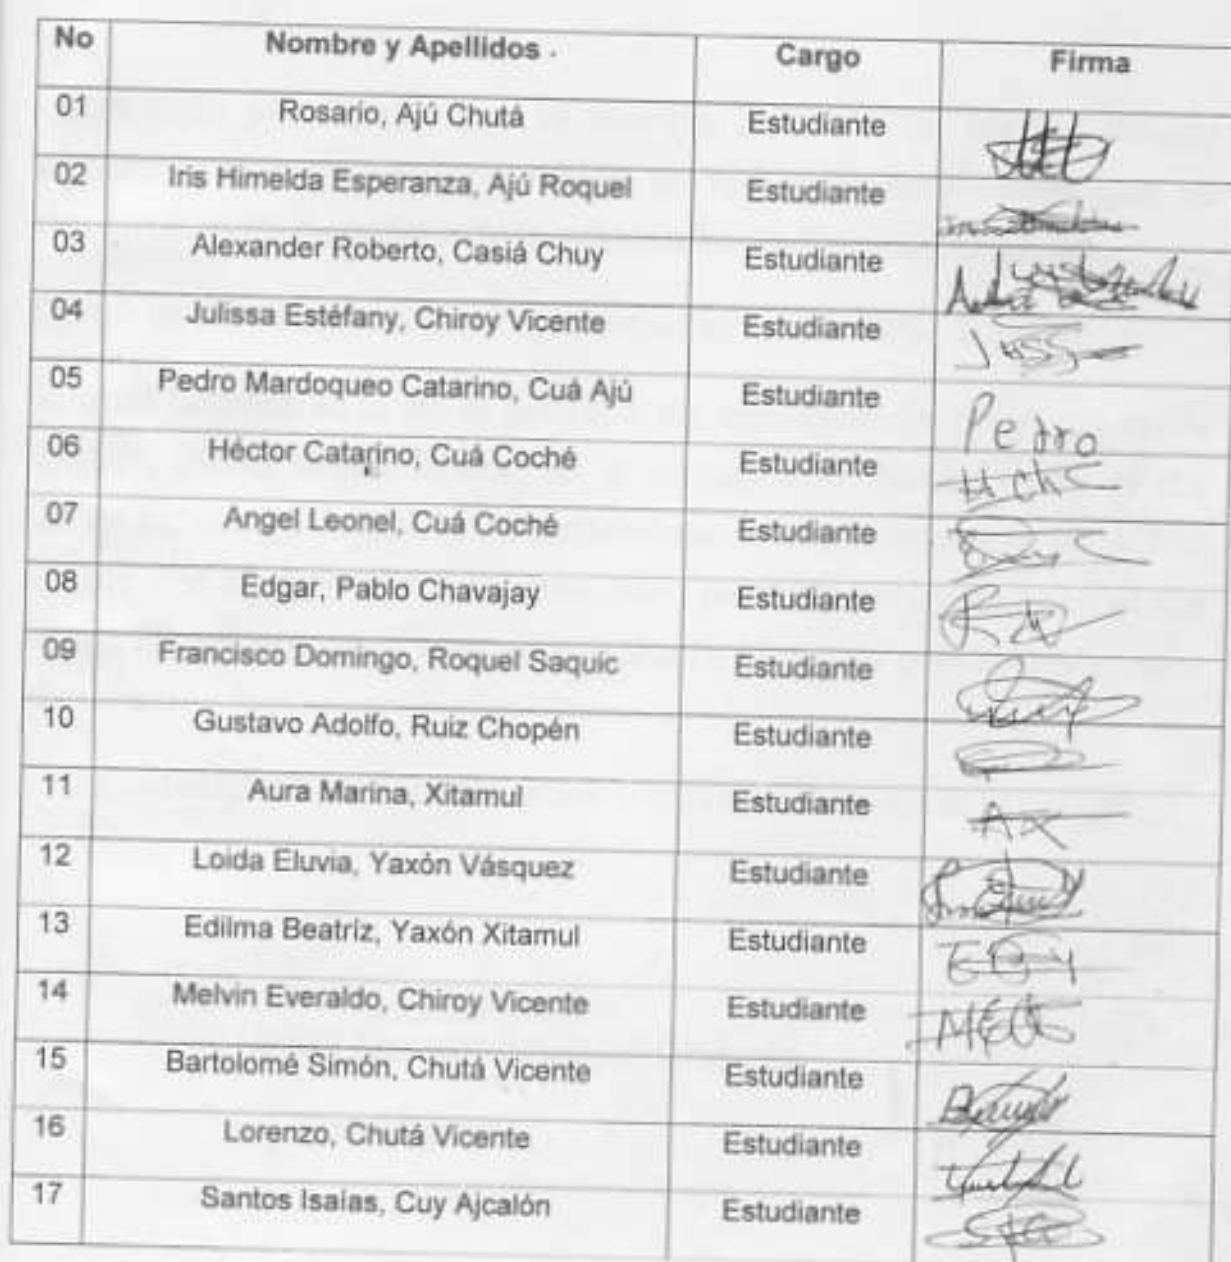 No Nombre y Apellidos . Cargo Firma
01 Rosario, Ajú Chutá Estudiante
02 Iris Himelda Esperanza, Ajú Roquel Estudiante
03 Alexander Roberto, Casiá Chuy Estudiante
04 Julissa Estéfany, Chiroy Vicente Estudiante
05 Pedro Mardoqueo Catarino, Cuá Ajú Estudiante Pedro
06 Héctor Catarino, Cuá Coché Estudiante HChC
07 Angel Leonel, Cuá Coché Estudiante
08 Edgar, Pablo Chavajay Estudiante
09 Francisco Domingo, Roquel Saquic Estudiante
10 Gustavo Adolfo, Ruiz Chopén Estudiante
11 Aura Marina, Xitamul Estudiante AX
12 Loida Eluvia, Yaxón Vásquez Estudiante
13 Edilma Beatríz, Yaxón Xitamul Estudiante EBY
14 Melvin Everaldo, Chiroy Vicente Estudiante
15 Bartolomé Simón, Chutá Vicente Estudiante
16 Lorenzo, Chutá Vicente Estudiante
17 Santos Isaías, Cuy Ajcalón Estudiante